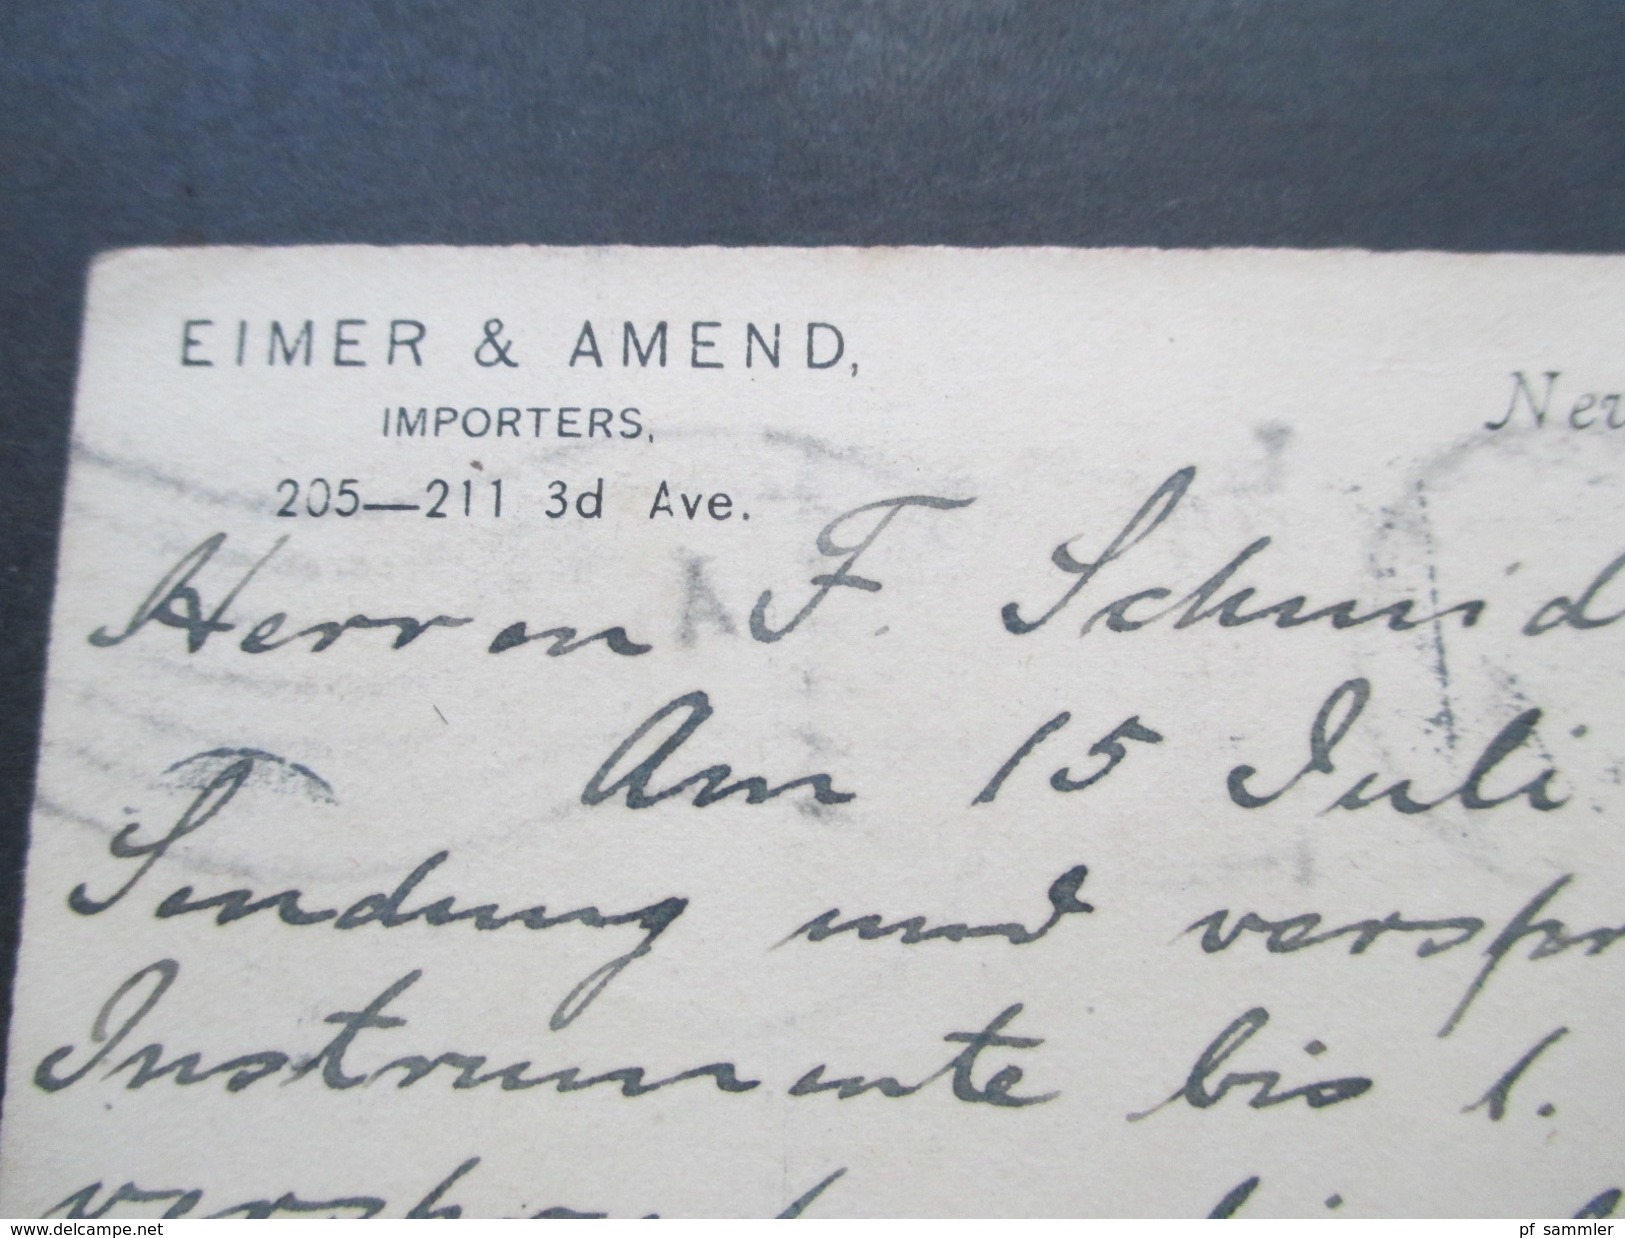 EIMER & AMEND,
IMPORTERS,
205—211 3d Ave.
New
Herren F. Schmid
Am 15 Juli
Sendung und verspr
Instrumente bis 1.
www.delcampe.net
pf_sammler